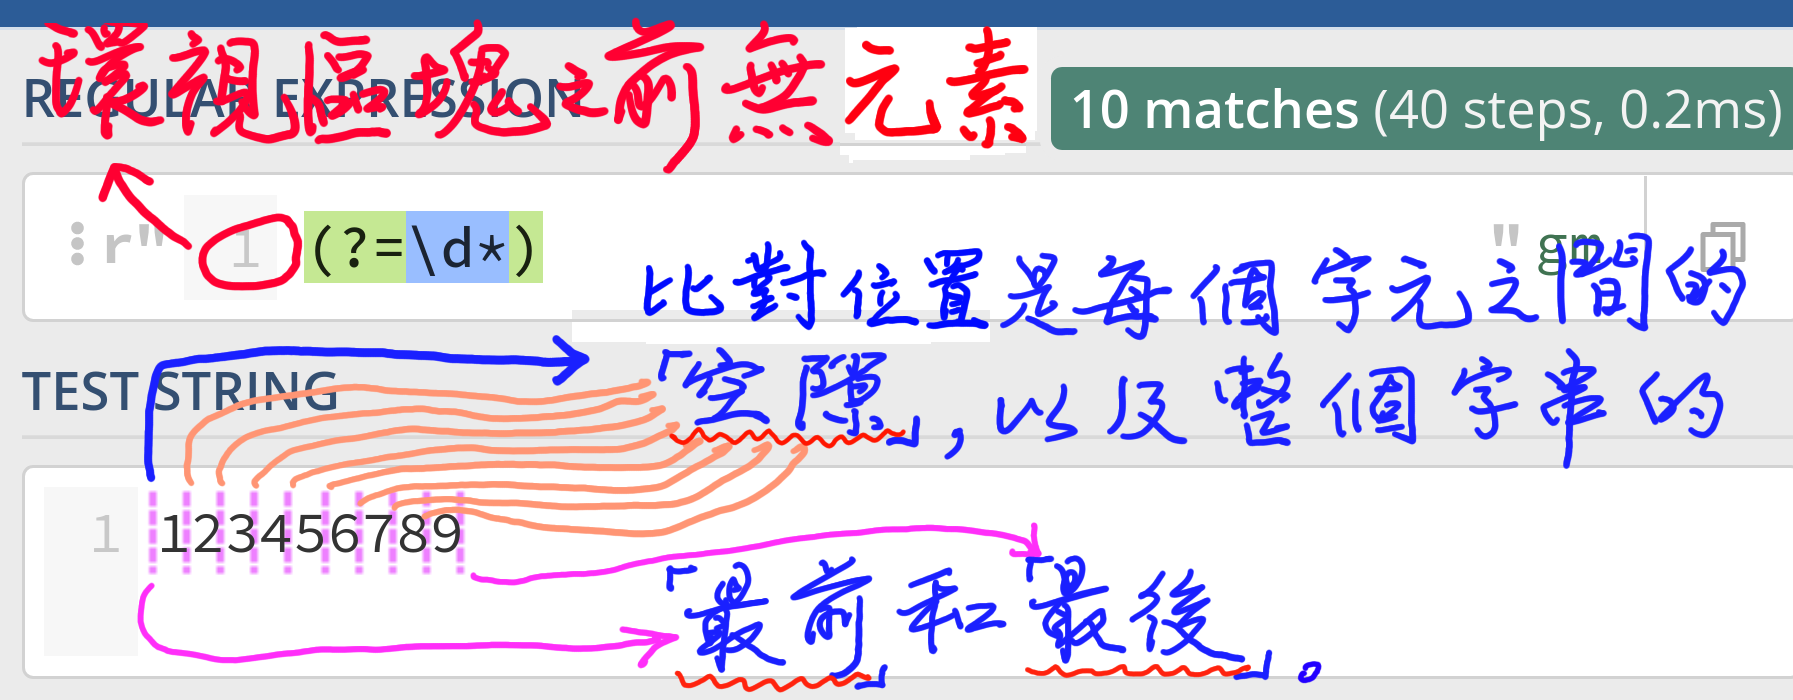 環視區塊之前無元素
REGULAR EXPRESSION
10 matches (40 steps, 0.2ms)
r" 1 (?=\d*) " gm
比對位置是每個字元之間的
「空隙」,以及整個字串的
TEST STRING
1 123456789
「最前」和「最後」。